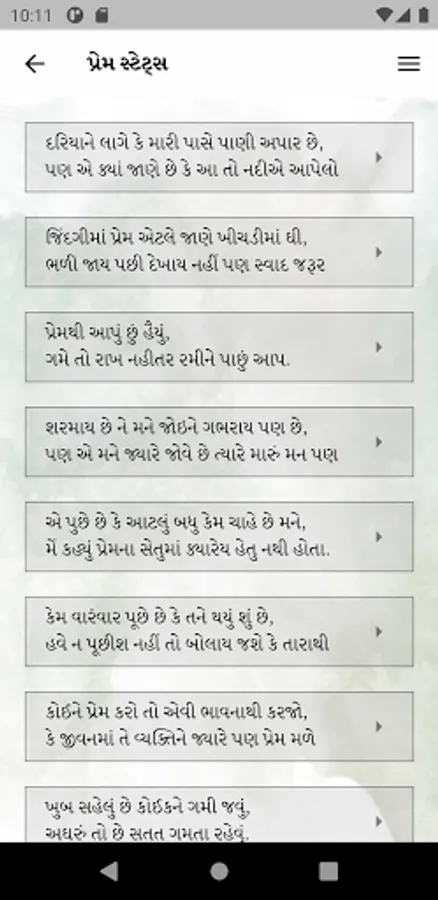 10:11
પ્રેમ સ્ટેટ્સ
દરિયાને લાગે કે મારી પાસે પાણી અપાર છે,
પણ એ ક્યાં જાણે છે કે આ તો નદીએ આપેલો
જિંદગીમાં પ્રેમ એટલે જાણે ખીચડીમાં ઘી,
ભળી જાય પછી દેખાય નહીં પણ સ્વાદ જરૂર
પ્રેમથી આપું છું હૈયું,
ગમે તો રાખ નહીતર રમીને પાછું આપ.
શરમાય છે ને મને જોઇને ગભરાય પણ છે,
પણ એ મને જ્યારે જોવે છે ત્યારે મારું મન પણ
એ પુછે છે કે આટલું બધુ કેમ ચાહે છે મને,
મેં કહ્યું પ્રેમના સેતુમાં ક્યારેય હેતુ નથી હોતા.
કેમ વારંવાર પૂછે છે કે તને થયું શું છે,
હવે ન પૂછીશ નહીં તો બોલાય જશે કે તારાથી
કોઇને પ્રેમ કરો તો એવી ભાવનાથી કરજો,
કે જીવનમાં તે વ્યક્તિને જ્યારે પણ પ્રેમ મળે
ખુબ સહેલું છે કોઈકને ગમી જવું,
અઘરું તો છે સતત ગમતા રહેવું.